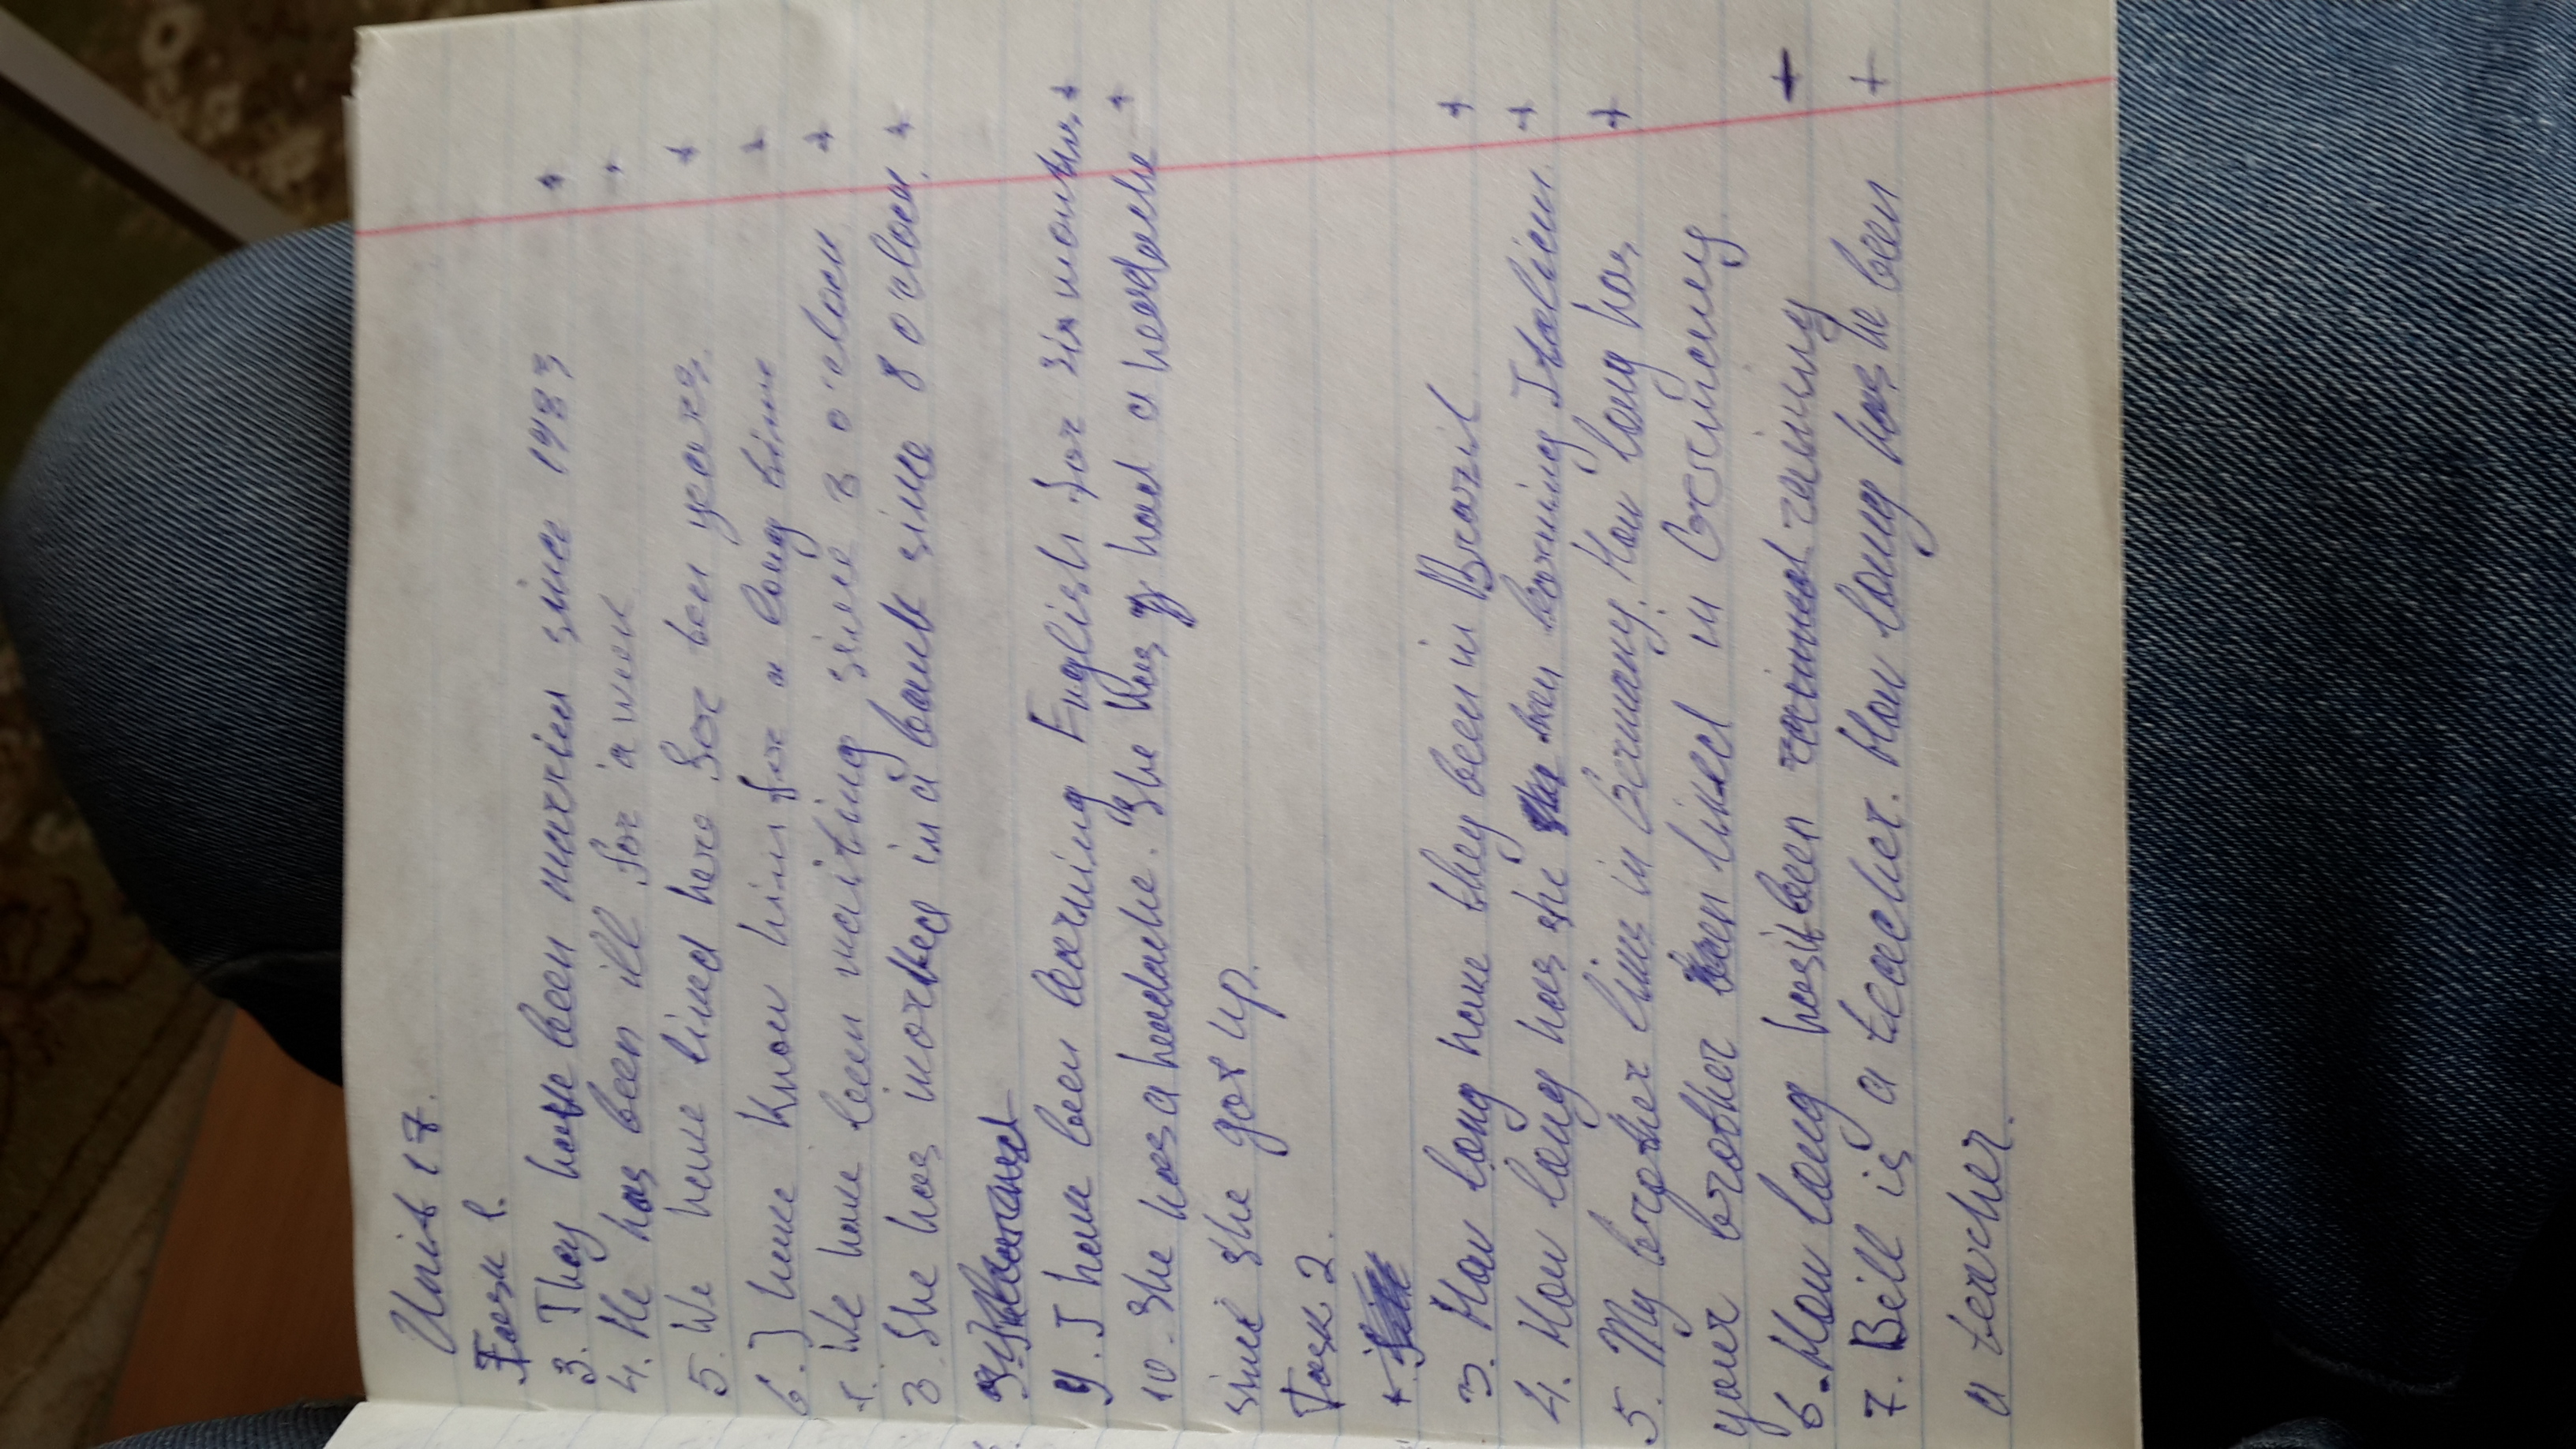 Unit 17.
Task 1.
3. They have been married since 1983 +
4. He has been ill for a week +
5. We have lived here for ten years. +
6. I have know him for a long time +
7. We have been waiting since 3 o'clock +
8. She has worked in a bank since 8 o'clock. +
9. I have been learning English for six months. +
10. She has a headache. She has had a headache +
since she got up.
Task 2.
3. How long have they been in Brazil +
4. How long has she been learning Italian +
5. My brother lives in Germany. How long has +
your brother been lived in Germany
6. How long has it been rainned raining +
7. Bill is a teacher. How long has he been +
a teacher.